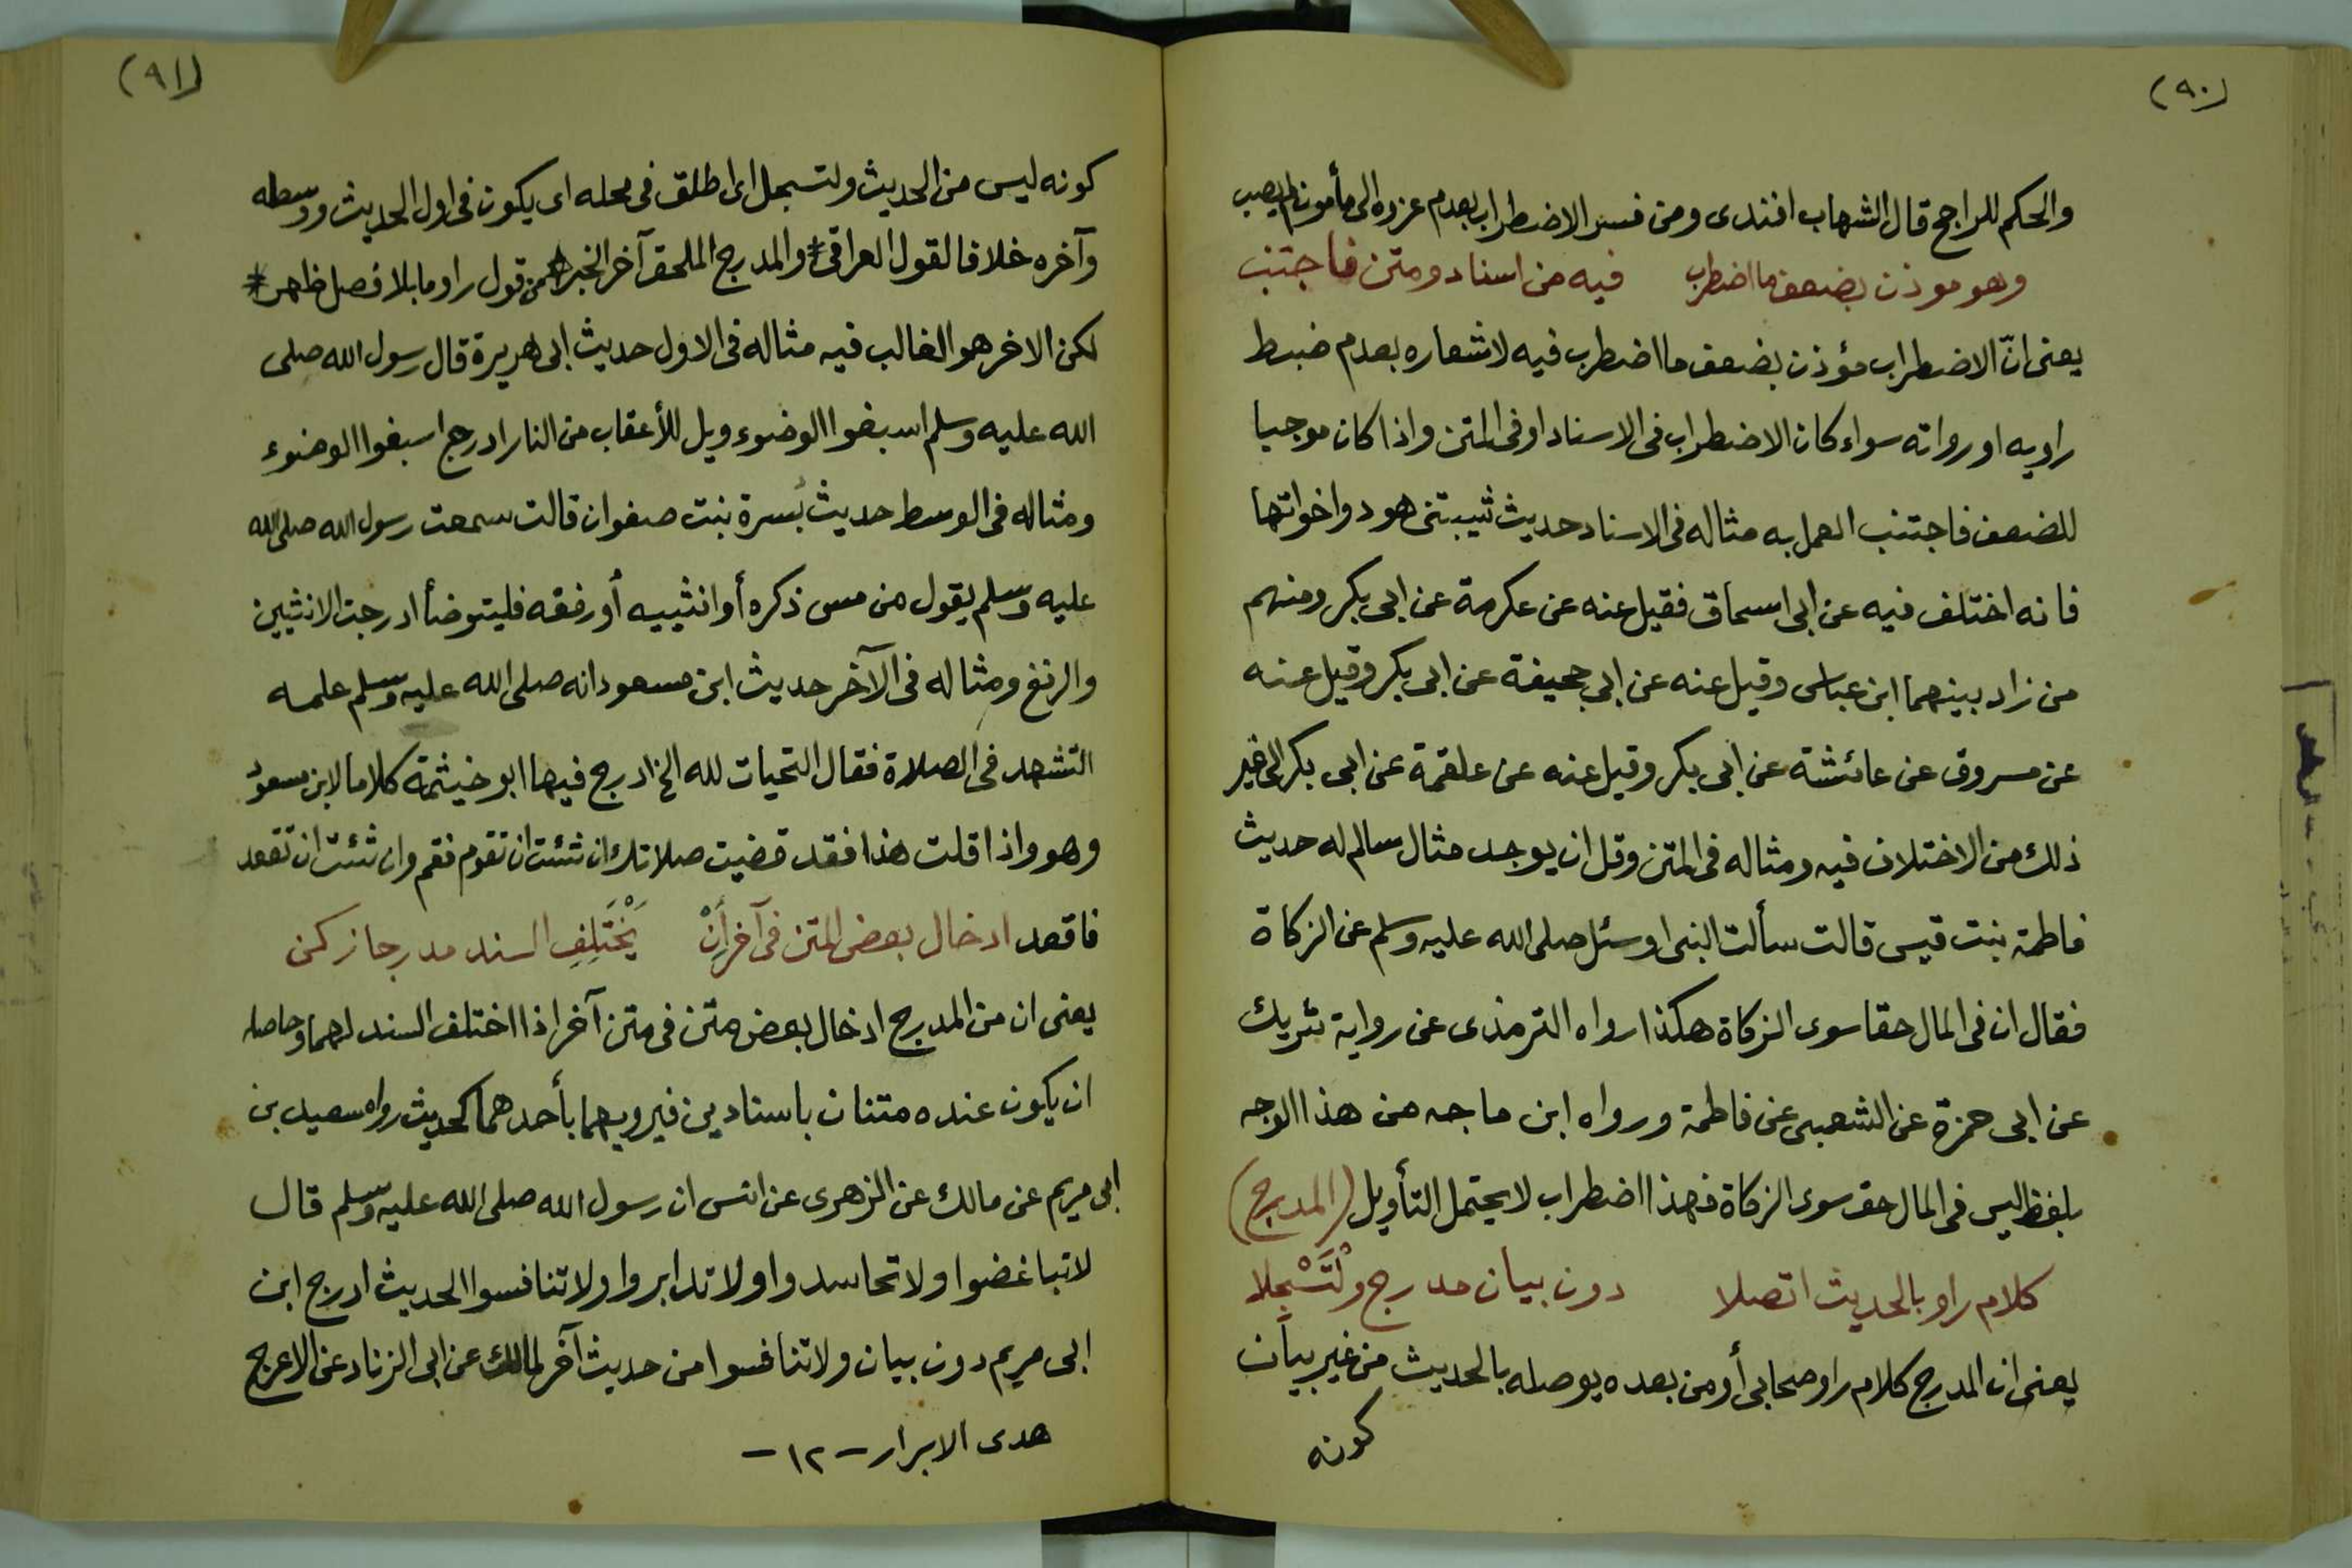 (٩٠)
والحكم للراجح قال الشهاب افندى ومن فسر الاضطراب بعدم عزوه الى مأمون لم يصب
وهو موذن بضعف ما اضطرب فيه من اسناد ومتن فاجتنب
يعنى انّ الاضطراب مؤذن بضعف ما اضطرب فيه لاشعاره بعدم ضبط
راويه او رواته سواء كان الاضطراب فى الاسناد او فى المتن واذا كان موجبا
للضعف فاجتنب العمل به مثاله فى الاسناد حديث شيبتنى هود واخواتها
فانه اختلف فيه عن ابى اسحاق فقيل عنه عن عكرمة عن ابى بكر ومنهم
من زاد بينهما ابن عباس وقيل عنه عن ابي جحيفة عن ابى بكر وقيل عنه
عن مسروق عن عائشة عن ابى بكر وقيل عنه عن علقمة عن ابى بكر الى غير
ذلك من الاختلاف فيه ومثاله فى المتن وقل ان يوجد مثال سالم له حديث
فاطمة بنت قيس قالت سألت النبى او سئل صلى الله عليه وسلم عن الزكاة
فقال ان فى المال حقا سوى الزكاة هكذا رواه الترمذى عن رواية شريك
عن ابى حمزة عن الشعبى عن فاطمة ورواه ابن ماجه من هذا الوجه
بلفظ ليس فى المال حق سوى الزكاة فهذا اضطراب لا يحتمل التأويل (المدرج)
كلام راو بالحديث اتصلا دون بيان مدرج ولْتَسْجِلا
يعنى ان المدرج كلام راو صحابى أو من بعده يوصله بالحديث من غير بيان
كونه
(٩١)
كونه ليس من الحديث ولتسجل اى اطلق فى محله اى يكون فى اول الحديث ووسطه
وآخره خلافا لقول العراقى * والمدرج الملحق آخر الخبر * من قول راو ما بلا فصل ظهر *
لكن الاخر هو الغالب فيه مثاله فى الاول حديث ابى هريرة قال رسول الله صلى
الله عليه وسلم اسبغوا الوضوء ويل للأعقاب من النار ادرج اسبغوا الوضوء
ومثاله فى الوسط حديث بُسرة بنت صفوان قالت سمعت رسول الله صلى الله
عليه وسلم يقول من مس ذكره أو انثييه أو رفغه فليتوضأ ادرجت الانثيين
والرفغ ومثاله فى الآخر حديث ابن مسعود انه صلى الله عليه وسلم علمه
التشهد فى الصلاة فقال التحيات لله الخ ادرج فيها ابو خيثمة كلاما لابن مسعود
وهو واذا قلت هذا فقد قضيت صلاتك ان شئت ان تقوم فقم وان شئت ان تقعد
فاقعد ادخال بعض المتن فى آخر إنْ يَخْتَلِفِ السند مدرجا زكن
يعنى ان من المدرج ادخال بعض متن فى متن آخر اذا اختلف السند لهما وحاصله
ان يكون عنده متنان باسنادين فيرويهما بأحدهما كحديث رواه سعيد بن
ابى مريم عن مالك عن الزهرى عن انس ان رسول الله صلى الله عليه وسلم قال
لا تباغضوا ولا تحاسدوا ولا تدابروا ولا تنافسوا الحديث ادرج ابن
ابى مريم دون بيان ولا تنافسوا من حديث آخر لمالك عن ابى الزناد عن الاعرج
هدى الابرار - ١٢ -